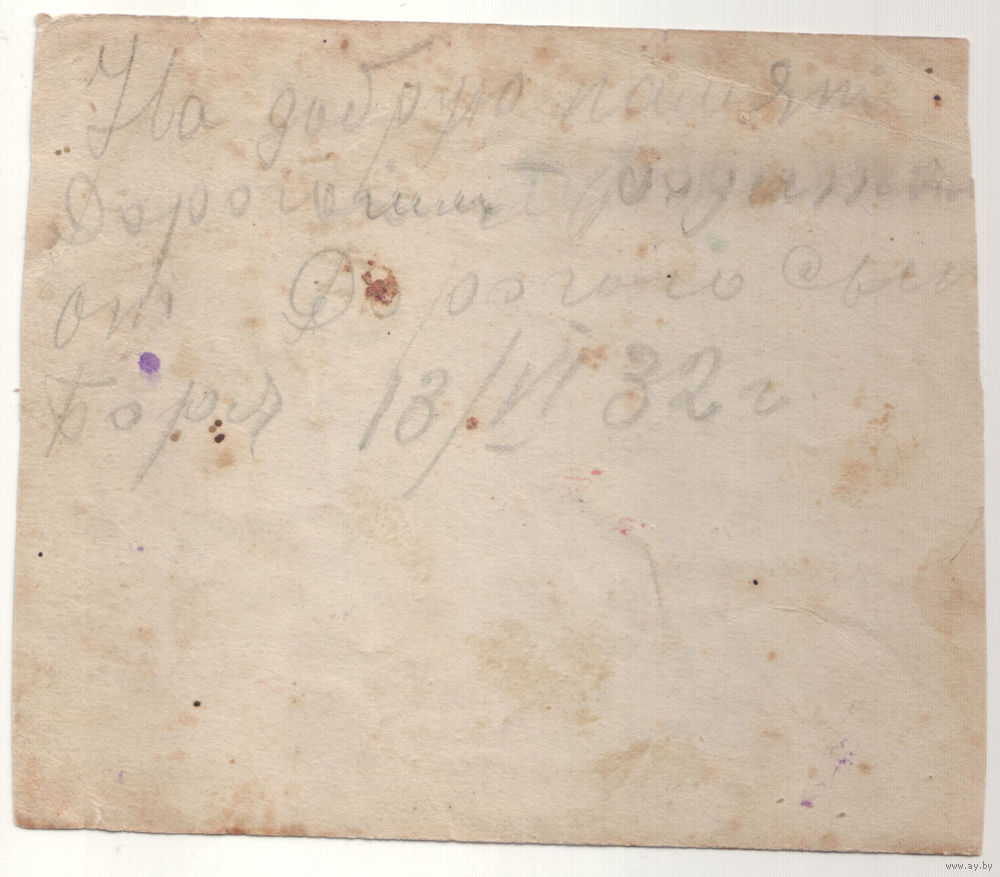 На добрую памят
Дорогоим родител
от Дорогого Сына
Боря 13/VI 32 г.
www.ay.by